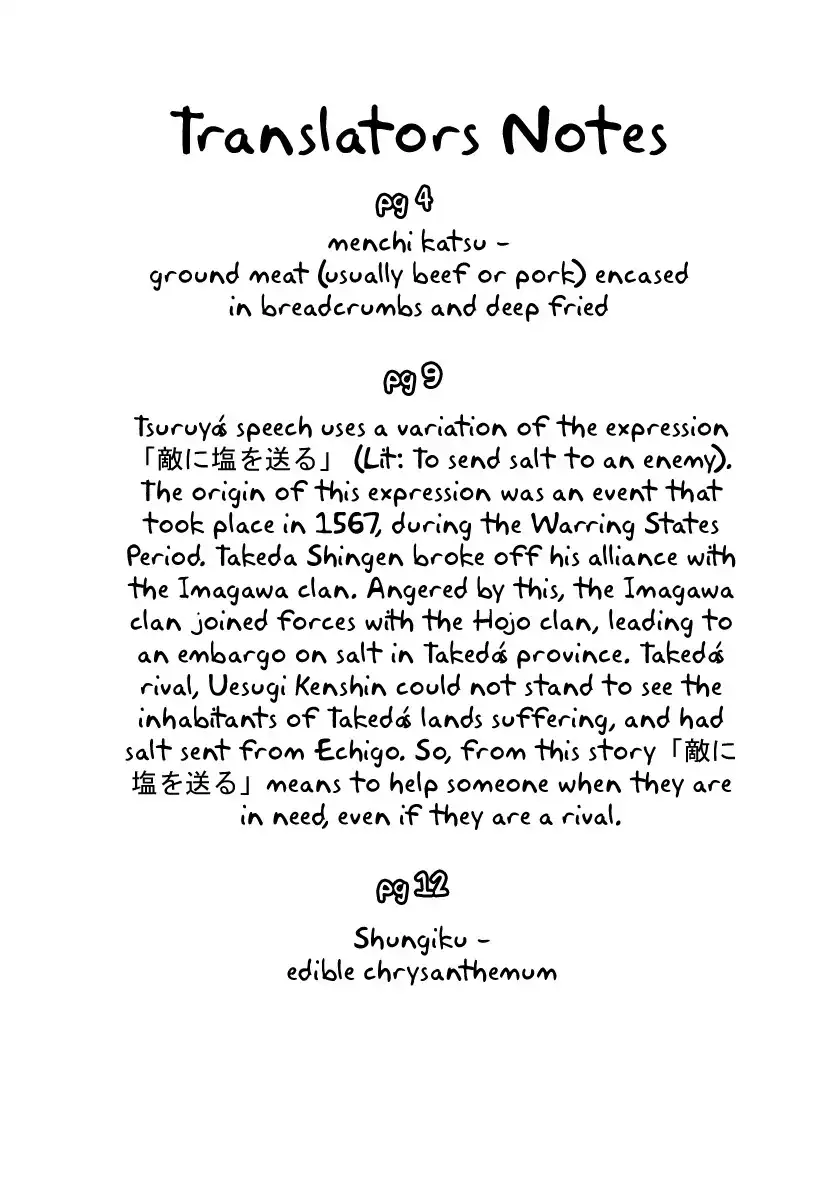 Translators Notes
pg 4
menchi katsu -
ground meat (usually beef or pork) encased
in breadcrumbs and deep fried
pg 9
Tsuruya's speech uses a variation of the expression
「敵に塩を送る」 (Lit: To send salt to an enemy).
The origin of this expression was an event that
took place in 1567, during the Warring States
Period. Takeda Shingen broke off his alliance with
the Imagawa clan. Angered by this, the Imagawa
clan joined forces with the Hojo clan, leading to
an embargo on salt in Takeda's province. Takeda's
rival, Uesugi Kenshin could not stand to see the
inhabitants of Takeda's lands suffering, and had
salt sent from Echigo. So, from this story「敵に
塩を送る」means to help someone when they are
in need, even if they are a rival.
pg 12
Shungiku -
edible chrysanthemum